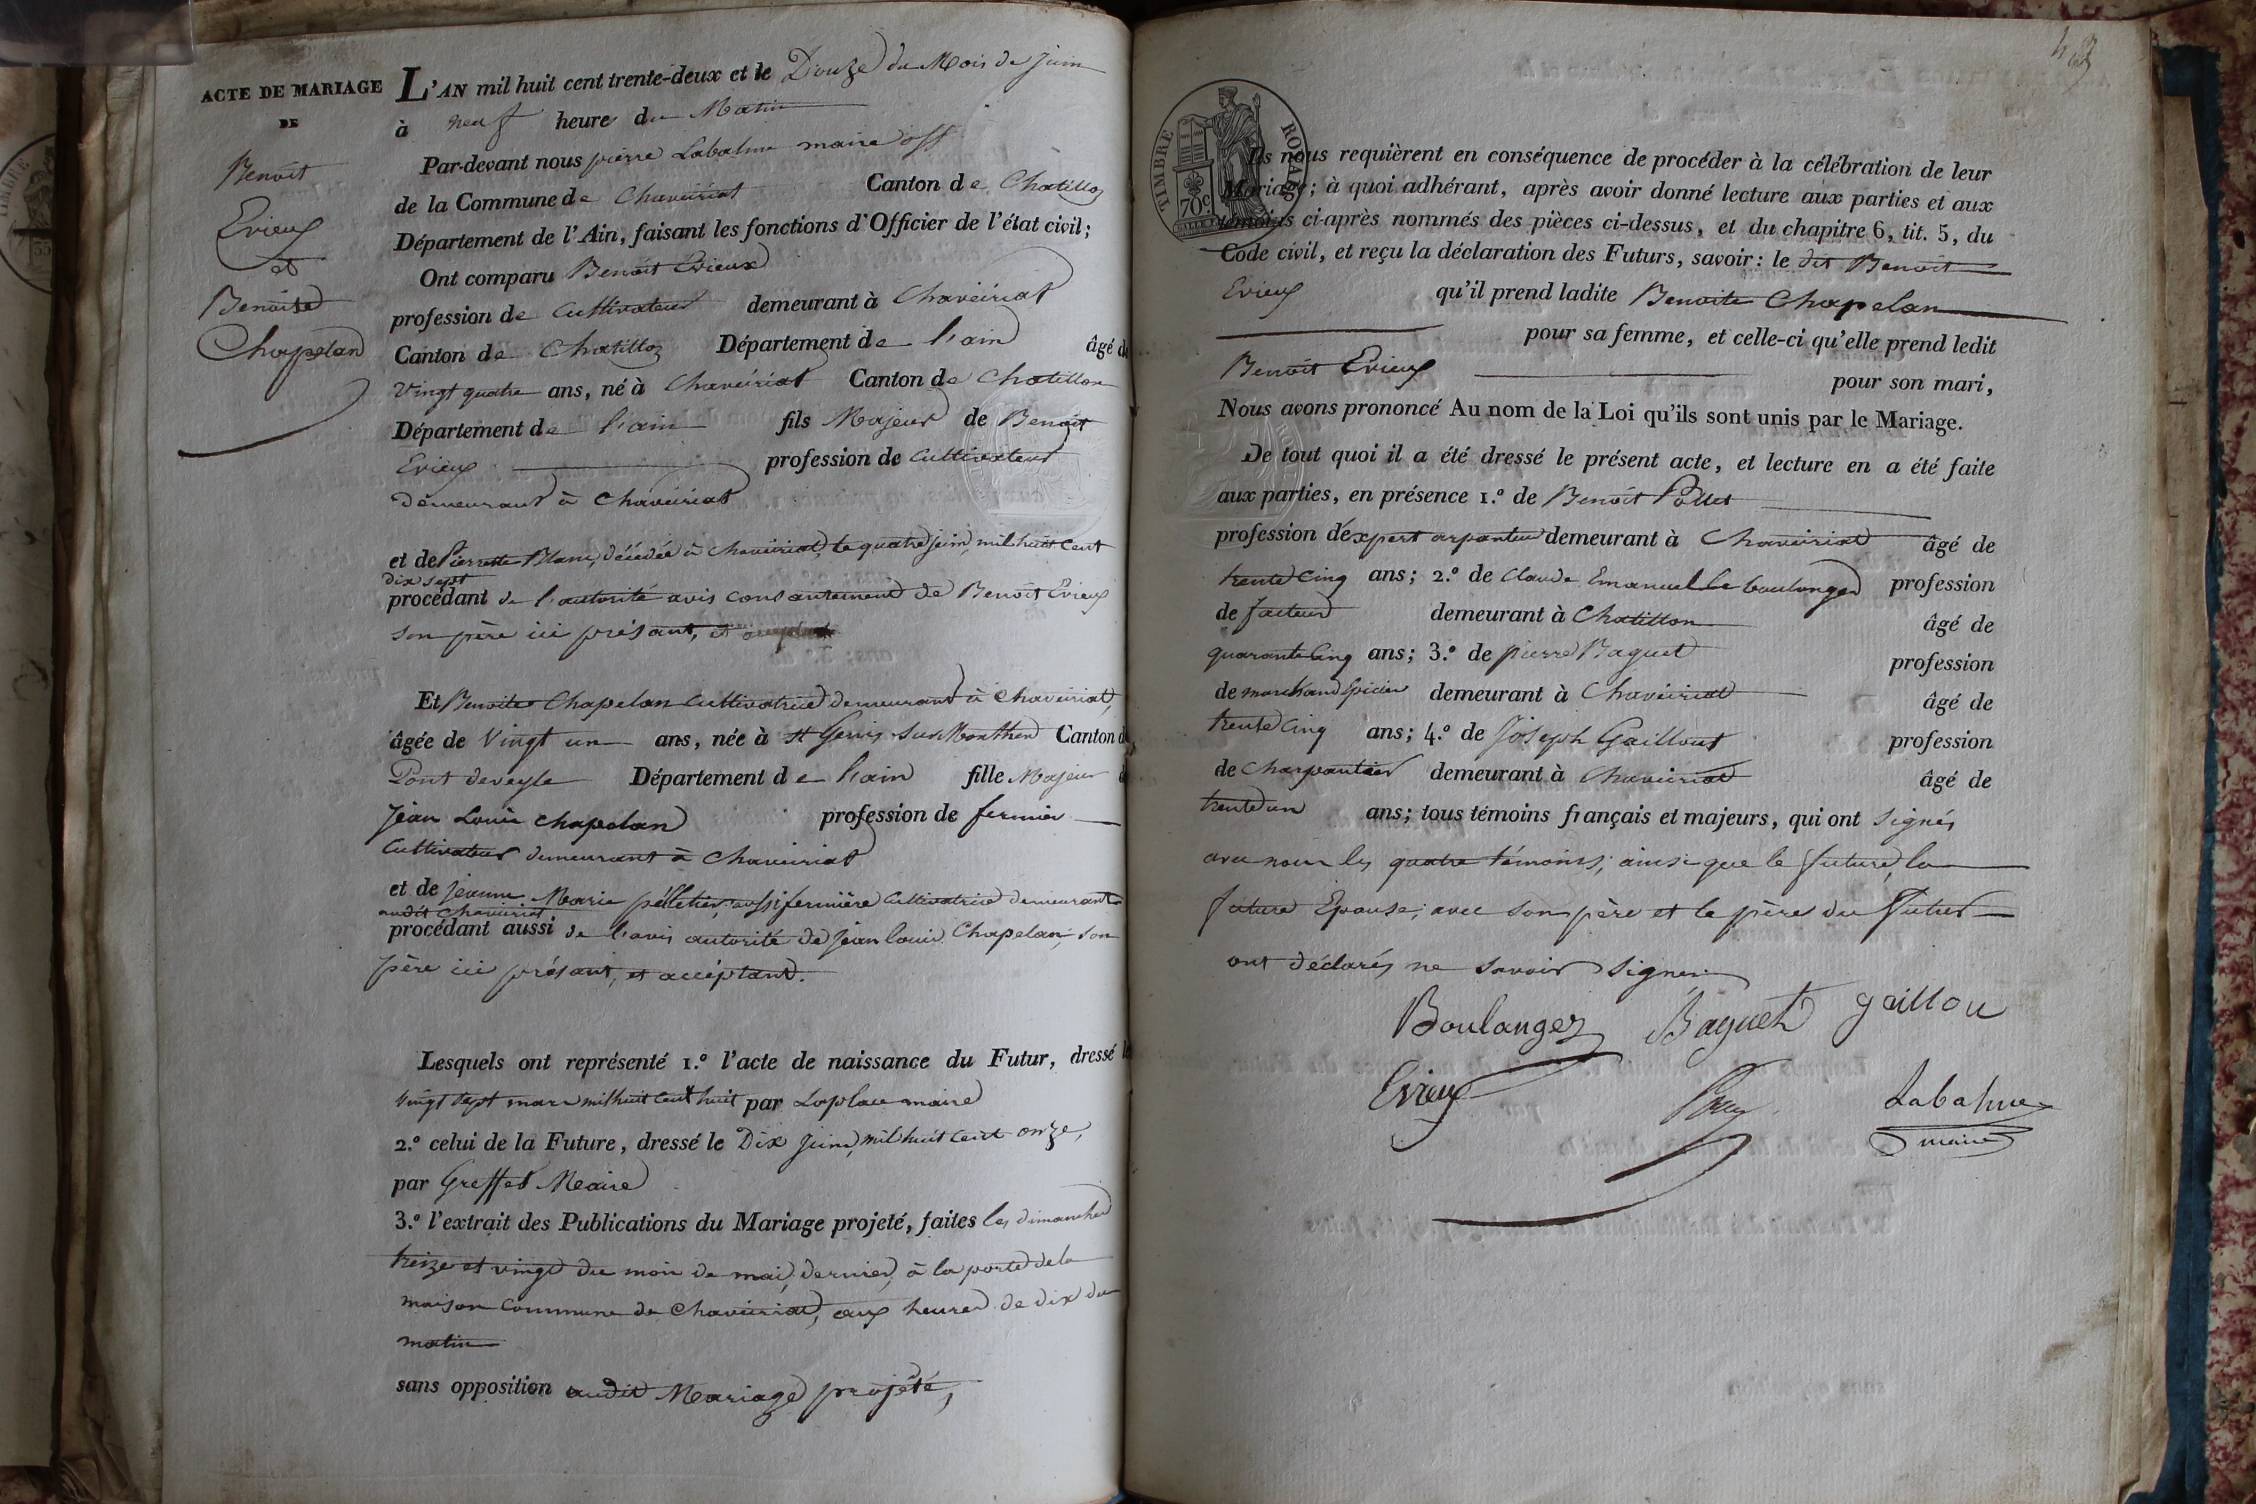 ACTE DE MARIAGE
DE
Benoît
Evieux
et
Benoite
Chapelan
L'AN mil huit cent trente-deux et le Douze du Mois de Juin
à neuf heure du Matin
Par-devant nous pierre Labalme maire off
de la Commune de Chaveiriat Canton de Chatillon
Département de l'Ain, faisant les fonctions d'Officier de l'état civil;
Ont comparu Benoit Evieux
profession de Cultivateur demeurant à Chaveiriat
Canton de Chatillon Département de l'ain âgé de
Vingt quatre ans, né à Chaveiriat Canton de Chatillon
Département de l'ain fils Majeur de Benoit
Evieux profession de Cultivateur
demeurant à Chaveiriat
et de Pierrette Blanc, décédée à Chaveiriat, le quatre juin, mil huit cent
dix sept
procédant de l'autorité avis consantement de Benoît Evieux
son père ici présant, et
Et Benoite Chapelan Cultivatrice demeurant à Chaveiriat,
âgée de Vingt un ans, née à St Genis sur Monthon Canton de
Pont deveyle Département de l'ain fille Majeur de
Jean Louis Chapelan profession de fermier
Cultivateur demeurant à Chaveiriat
et de Jeanne Marie pélletier, aussi fermière Cultivatrice demeurant
audit Chaveiriat
procédant aussi de l'avis autorité de Jean louis Chapelan, son
père ici présant, et accéptant.
Lesquels ont représenté 1.º l'acte de naissance du Futur, dressé le
Vingt sept mars mil huit cent huit par Laplace maire
2.º celui de la Future, dressé le Dix Juin, mil huit cent onze,
par Greffet Maire
3.º l'extrait des Publications du Mariage projeté, faites les dimanches
treize et vingt du mois de mai, dernier, à la porte de la
maison Commune de Chaveiriat, aux heures de dix du
matin
sans opposition audit Mariage projété,
TIMBRE ROYAL
70c
Ils nous requièrent en conséquence de procéder à la célébration de leur
Mariage; à quoi adhérant, après avoir donné lecture aux parties et aux
témoins ci-après nommés des pièces ci-dessus, et du chapitre 6, tit. 5, du
Code civil, et reçu la déclaration des Futurs, savoir: le dit Benoit
Evieux qu'il prend ladite Benoite Chapelan
pour sa femme, et celle-ci qu'elle prend ledit
Benoît Evieux pour son mari,
Nous avons prononcé Au nom de la Loi qu'ils sont unis par le Mariage.
De tout quoi il a été dressé le présent acte, et lecture en a été faite
aux parties, en présence 1.º de Benoît Pollet
profession d'éxpert arpanteur demeurant à Chaveiriat âgé de
trente Cinq ans; 2.º de Claude Emanuel le boulanger profession
de facteur demeurant à Chatillon âgé de
quarante Cinq ans; 3.º de pierre Baguet profession
de marchand Epicier demeurant à Chaveiriat âgé de
trente Cinq ans; 4.º de Joseph Gaillout profession
de Charpantier demeurant à Chaveiriat âgé de
trente un ans; tous témoins français et majeurs, qui ont signés
avec nous les quatre témoins, ainsi que le future, la
future Epouse, avec son père et le père du futur
ont déclarés ne savoir signer.
Boulanger Baguet gaillou
Evieux Labalme
maire